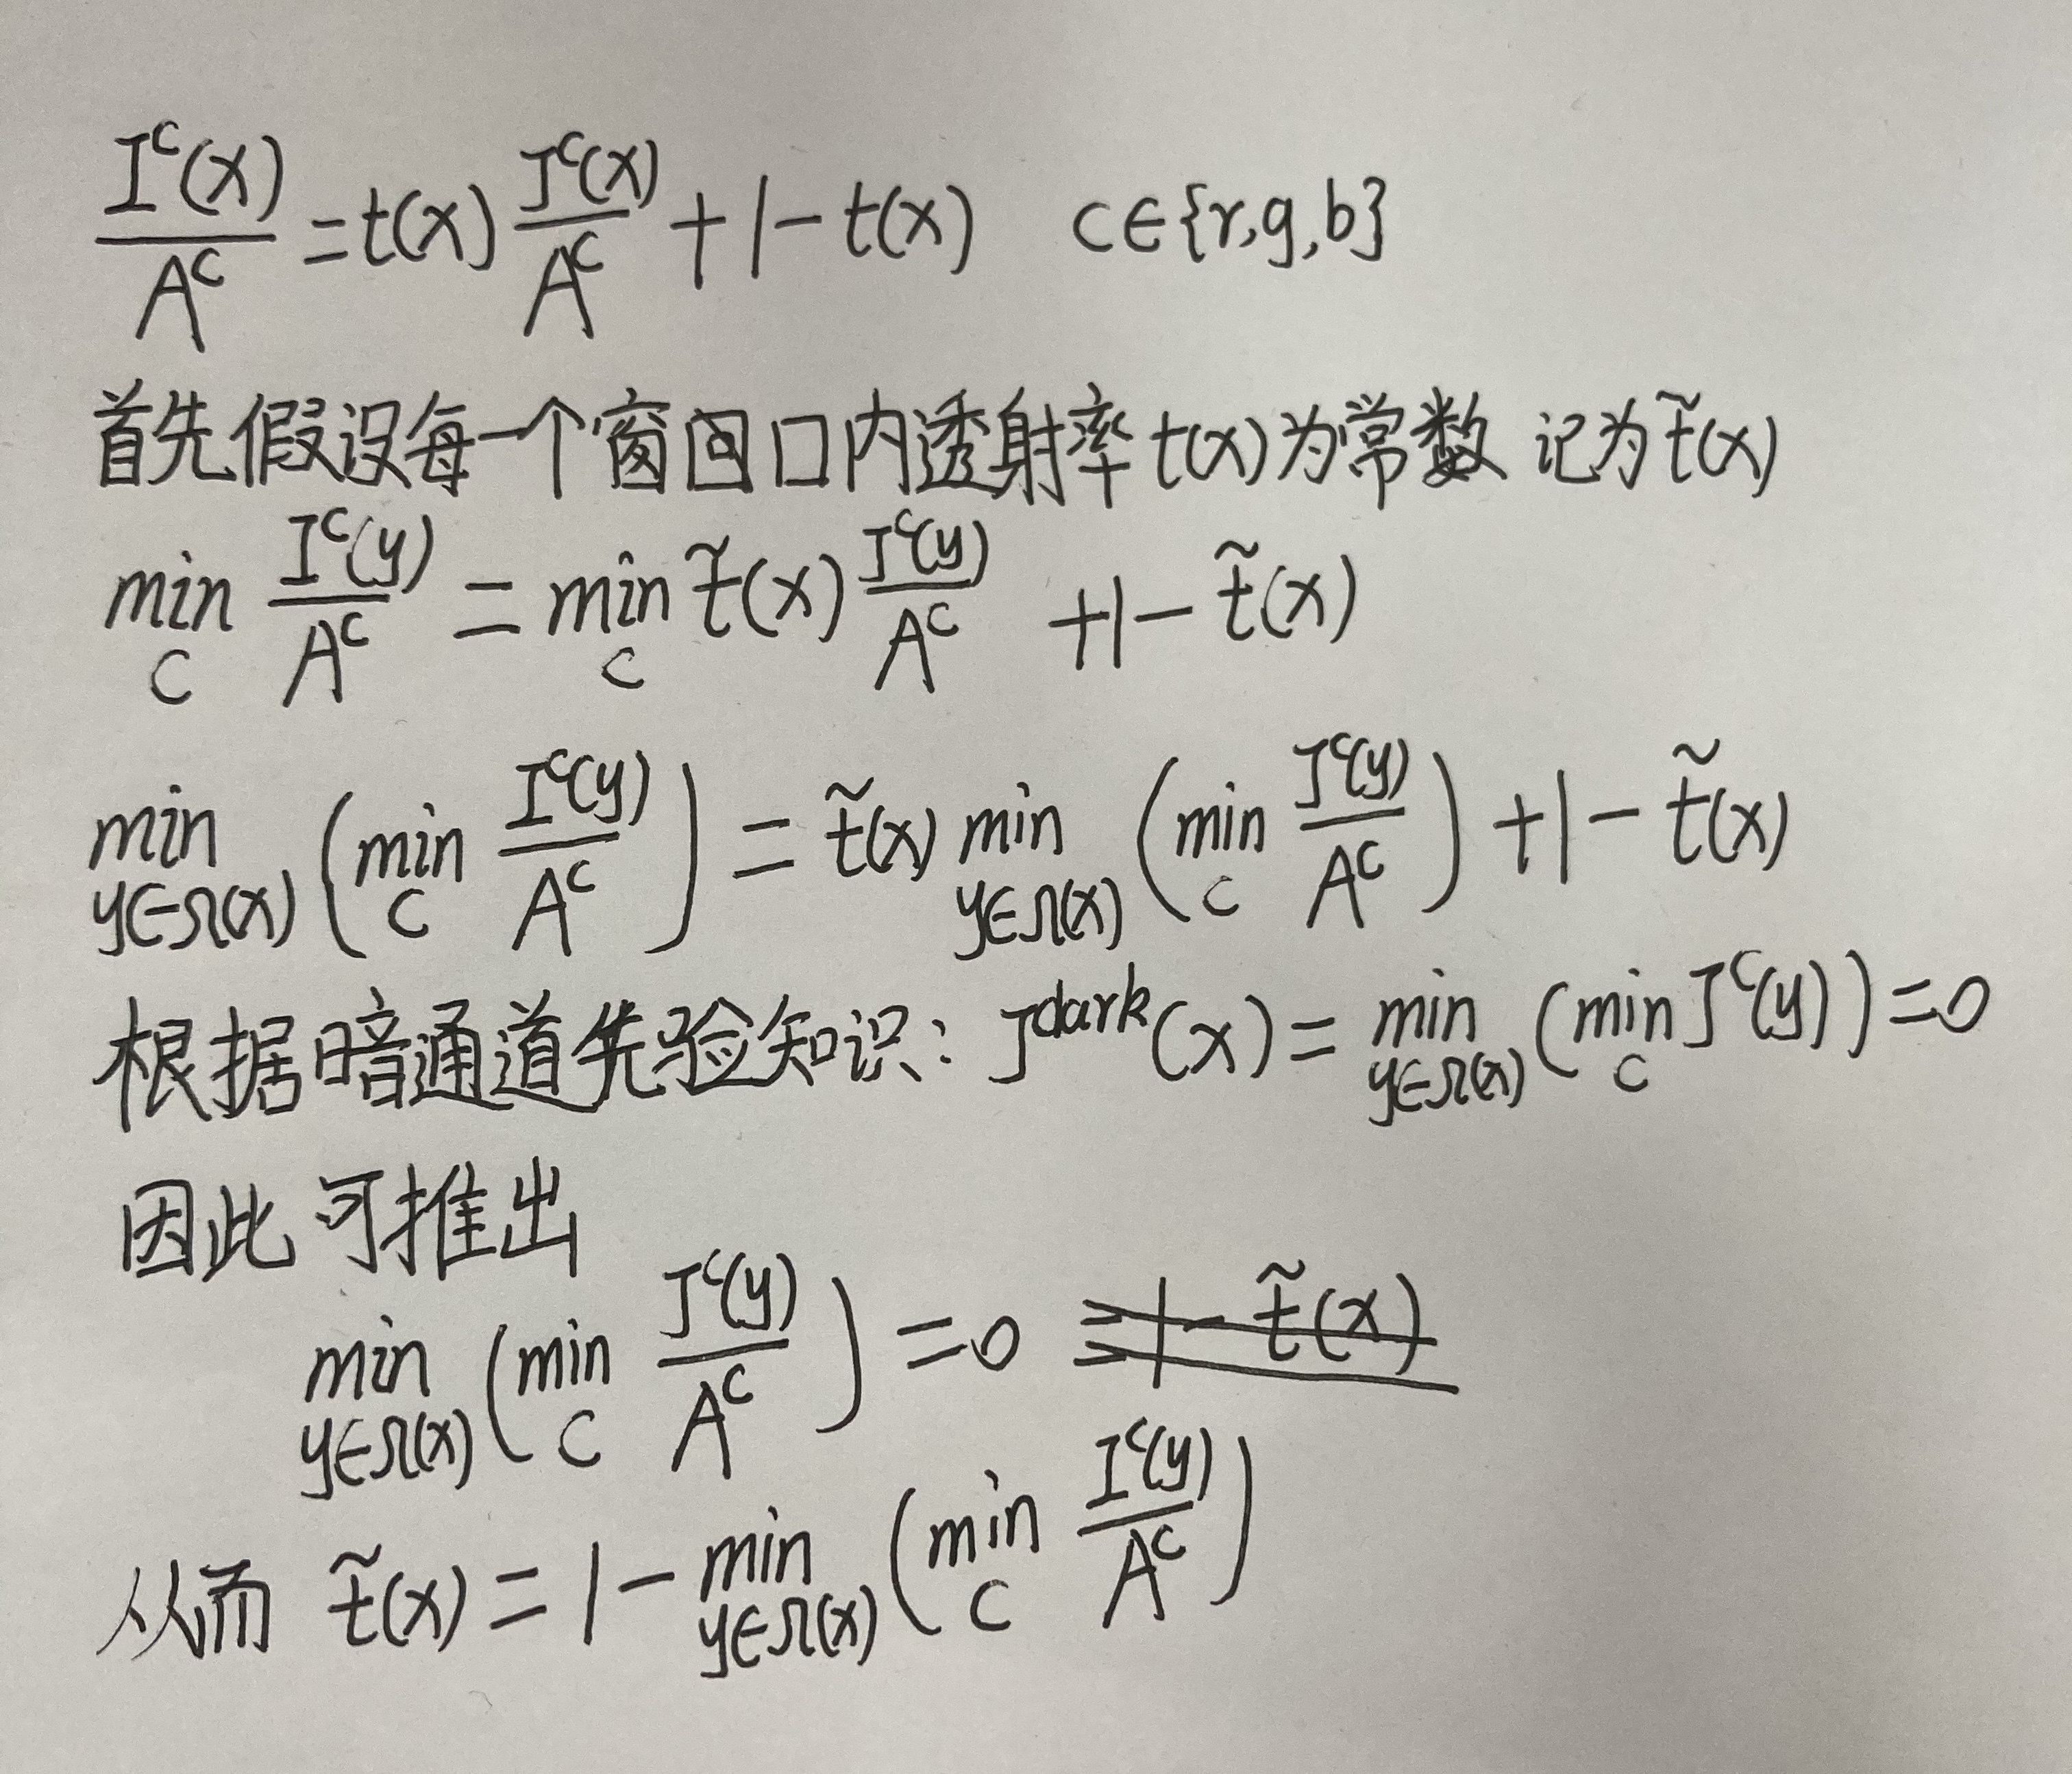 I^c(x)/A^c = t(x) J^c(x)/A^c + 1 - t(x) c∈{r,g,b}
首先假设每一个窗回口内透射率t(x)为常数 记为t̃(x)
min_c I^c(y)/A^c = min_c t̃(x) J^c(y)/A^c +1- t̃(x)
min_{y∈Ω(x)} (min_c I^c(y)/A^c) = t̃(x) min_{y∈Ω(x)} (min_c J^c(y)/A^c) +1- t̃(x)
根据暗通道先验知识: J^dark(x) = min_{y∈Ω(x)} (min_c J^c(y)) =0
因此可推出
min_{y∈Ω(x)} (min_c J^c(y)/A^c) =0 =1- t̃(x)
从而 t̃(x) = 1- min_{y∈Ω(x)} (min_c I^c(y)/A^c)